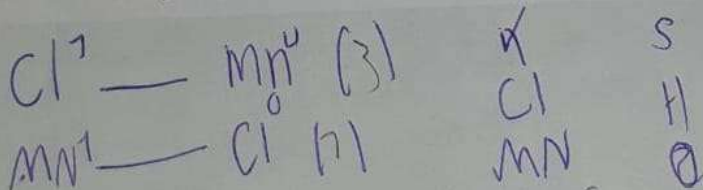 Cl¹ — Mn⁰ (3) K S
Cl H
MN¹ — Cl⁰ (7) MN O